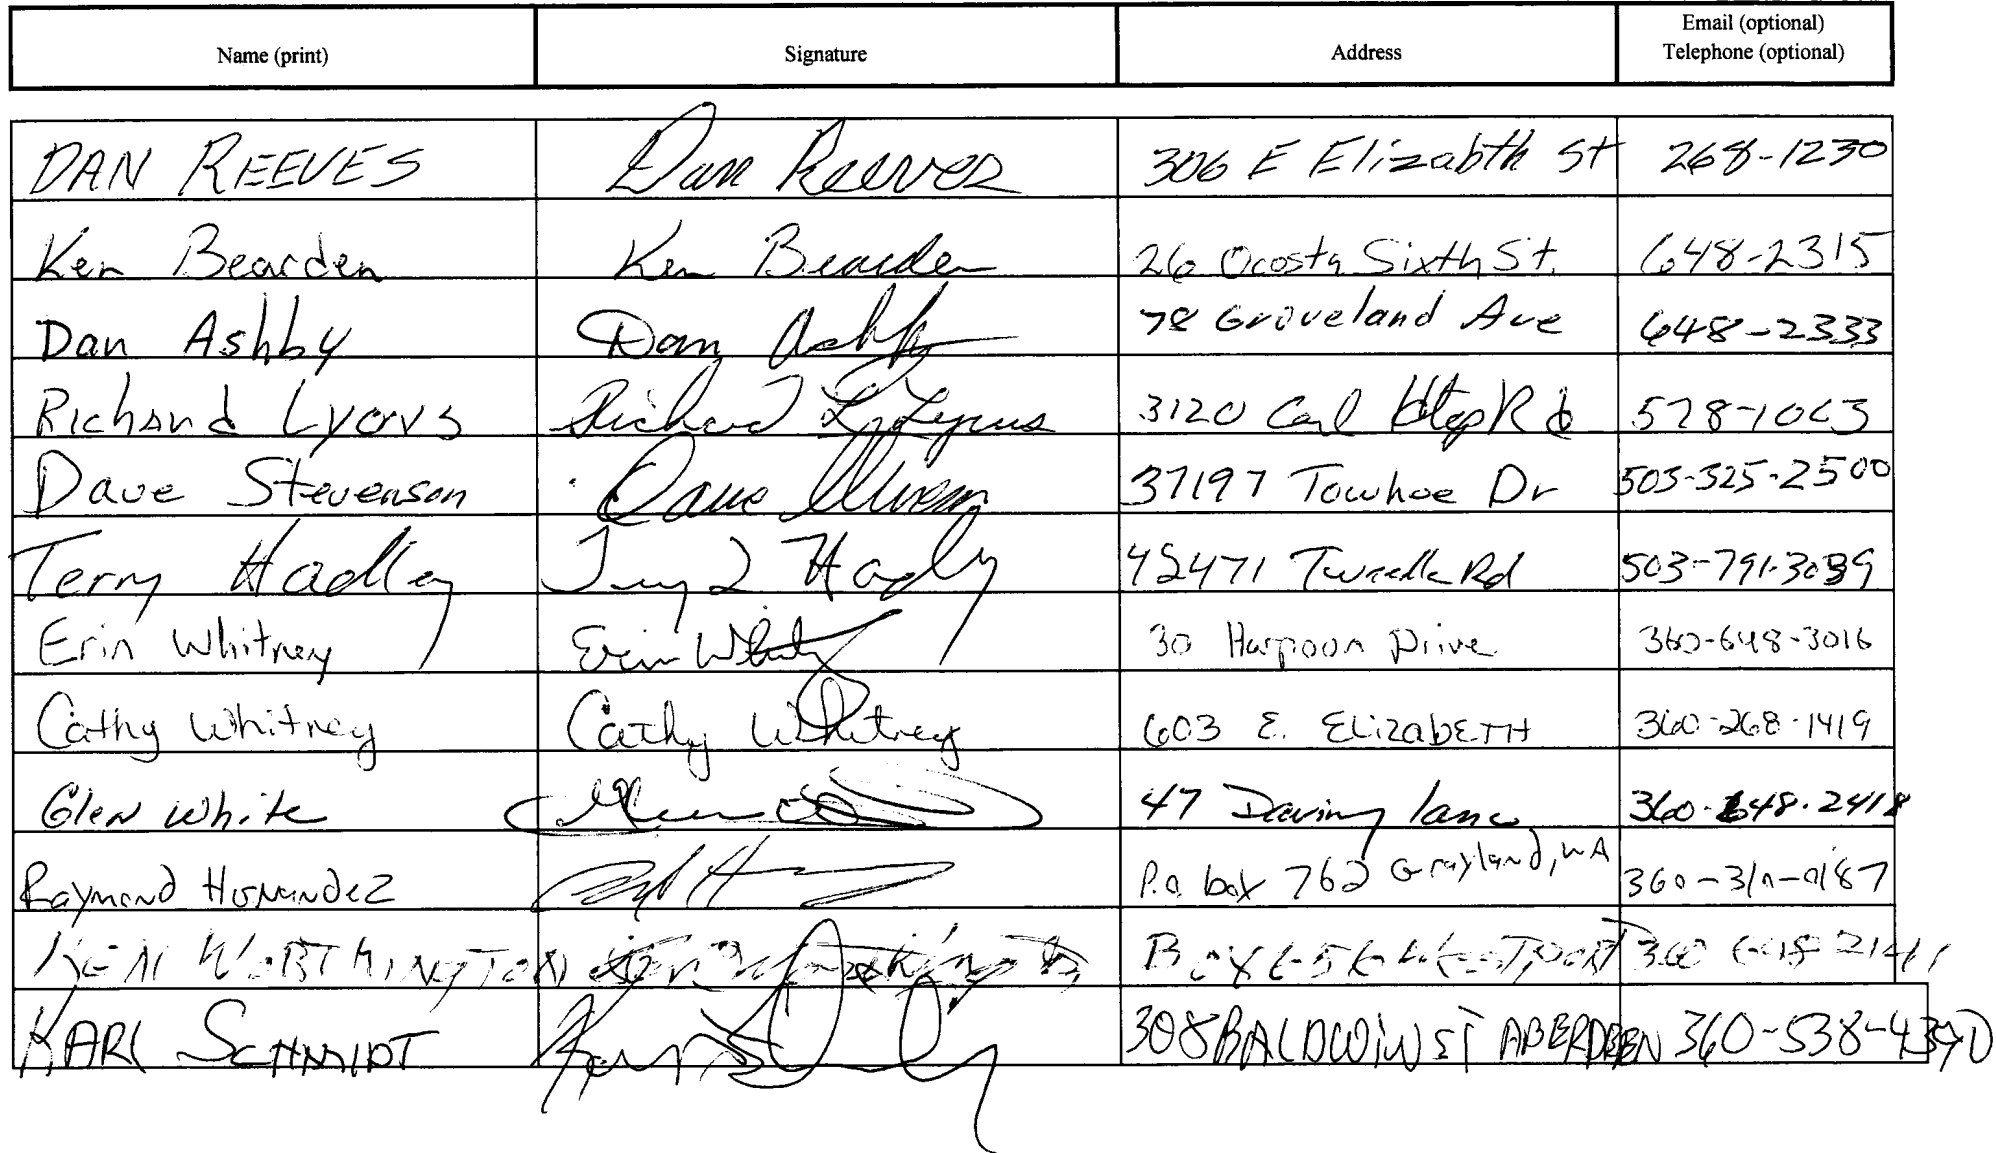 Name (print) Signature Address Email (optional) Telephone (optional)
DAN REEVES Dan Reeves 306 E Elizabth St 268-1230
Ken Bearden Ken Bearden 26 Ocosta Sixth St. 648-2315
Dan Ashby Dan Ashby 78 Groveland Ave 648-2333
Richard Lyons Richard L Lyons 3120 Rd 578-1063
Dave Stevenson Dave 37197 Towhee Dr 503-325-2500
Terry Hadley Terry L Hadley 42471 Rd 503-791-3039
Erin Whitney Erin Whitney 30 Harpoon Drive 360-648-3016
Cathy Whitney Cathy Whitney 603 E. ElizabETH 360-268-1419
Glen White Glen 47 lane 360-648-2418
Raymond Hernandez P.o. box 762 Grayland, WA 360-310-0187
KEN WORTHINGTON Ken Worthington Box Westport 360
KARL SCHMIDT 308 BALDWiN ST ABERDEEN 360-538-4390